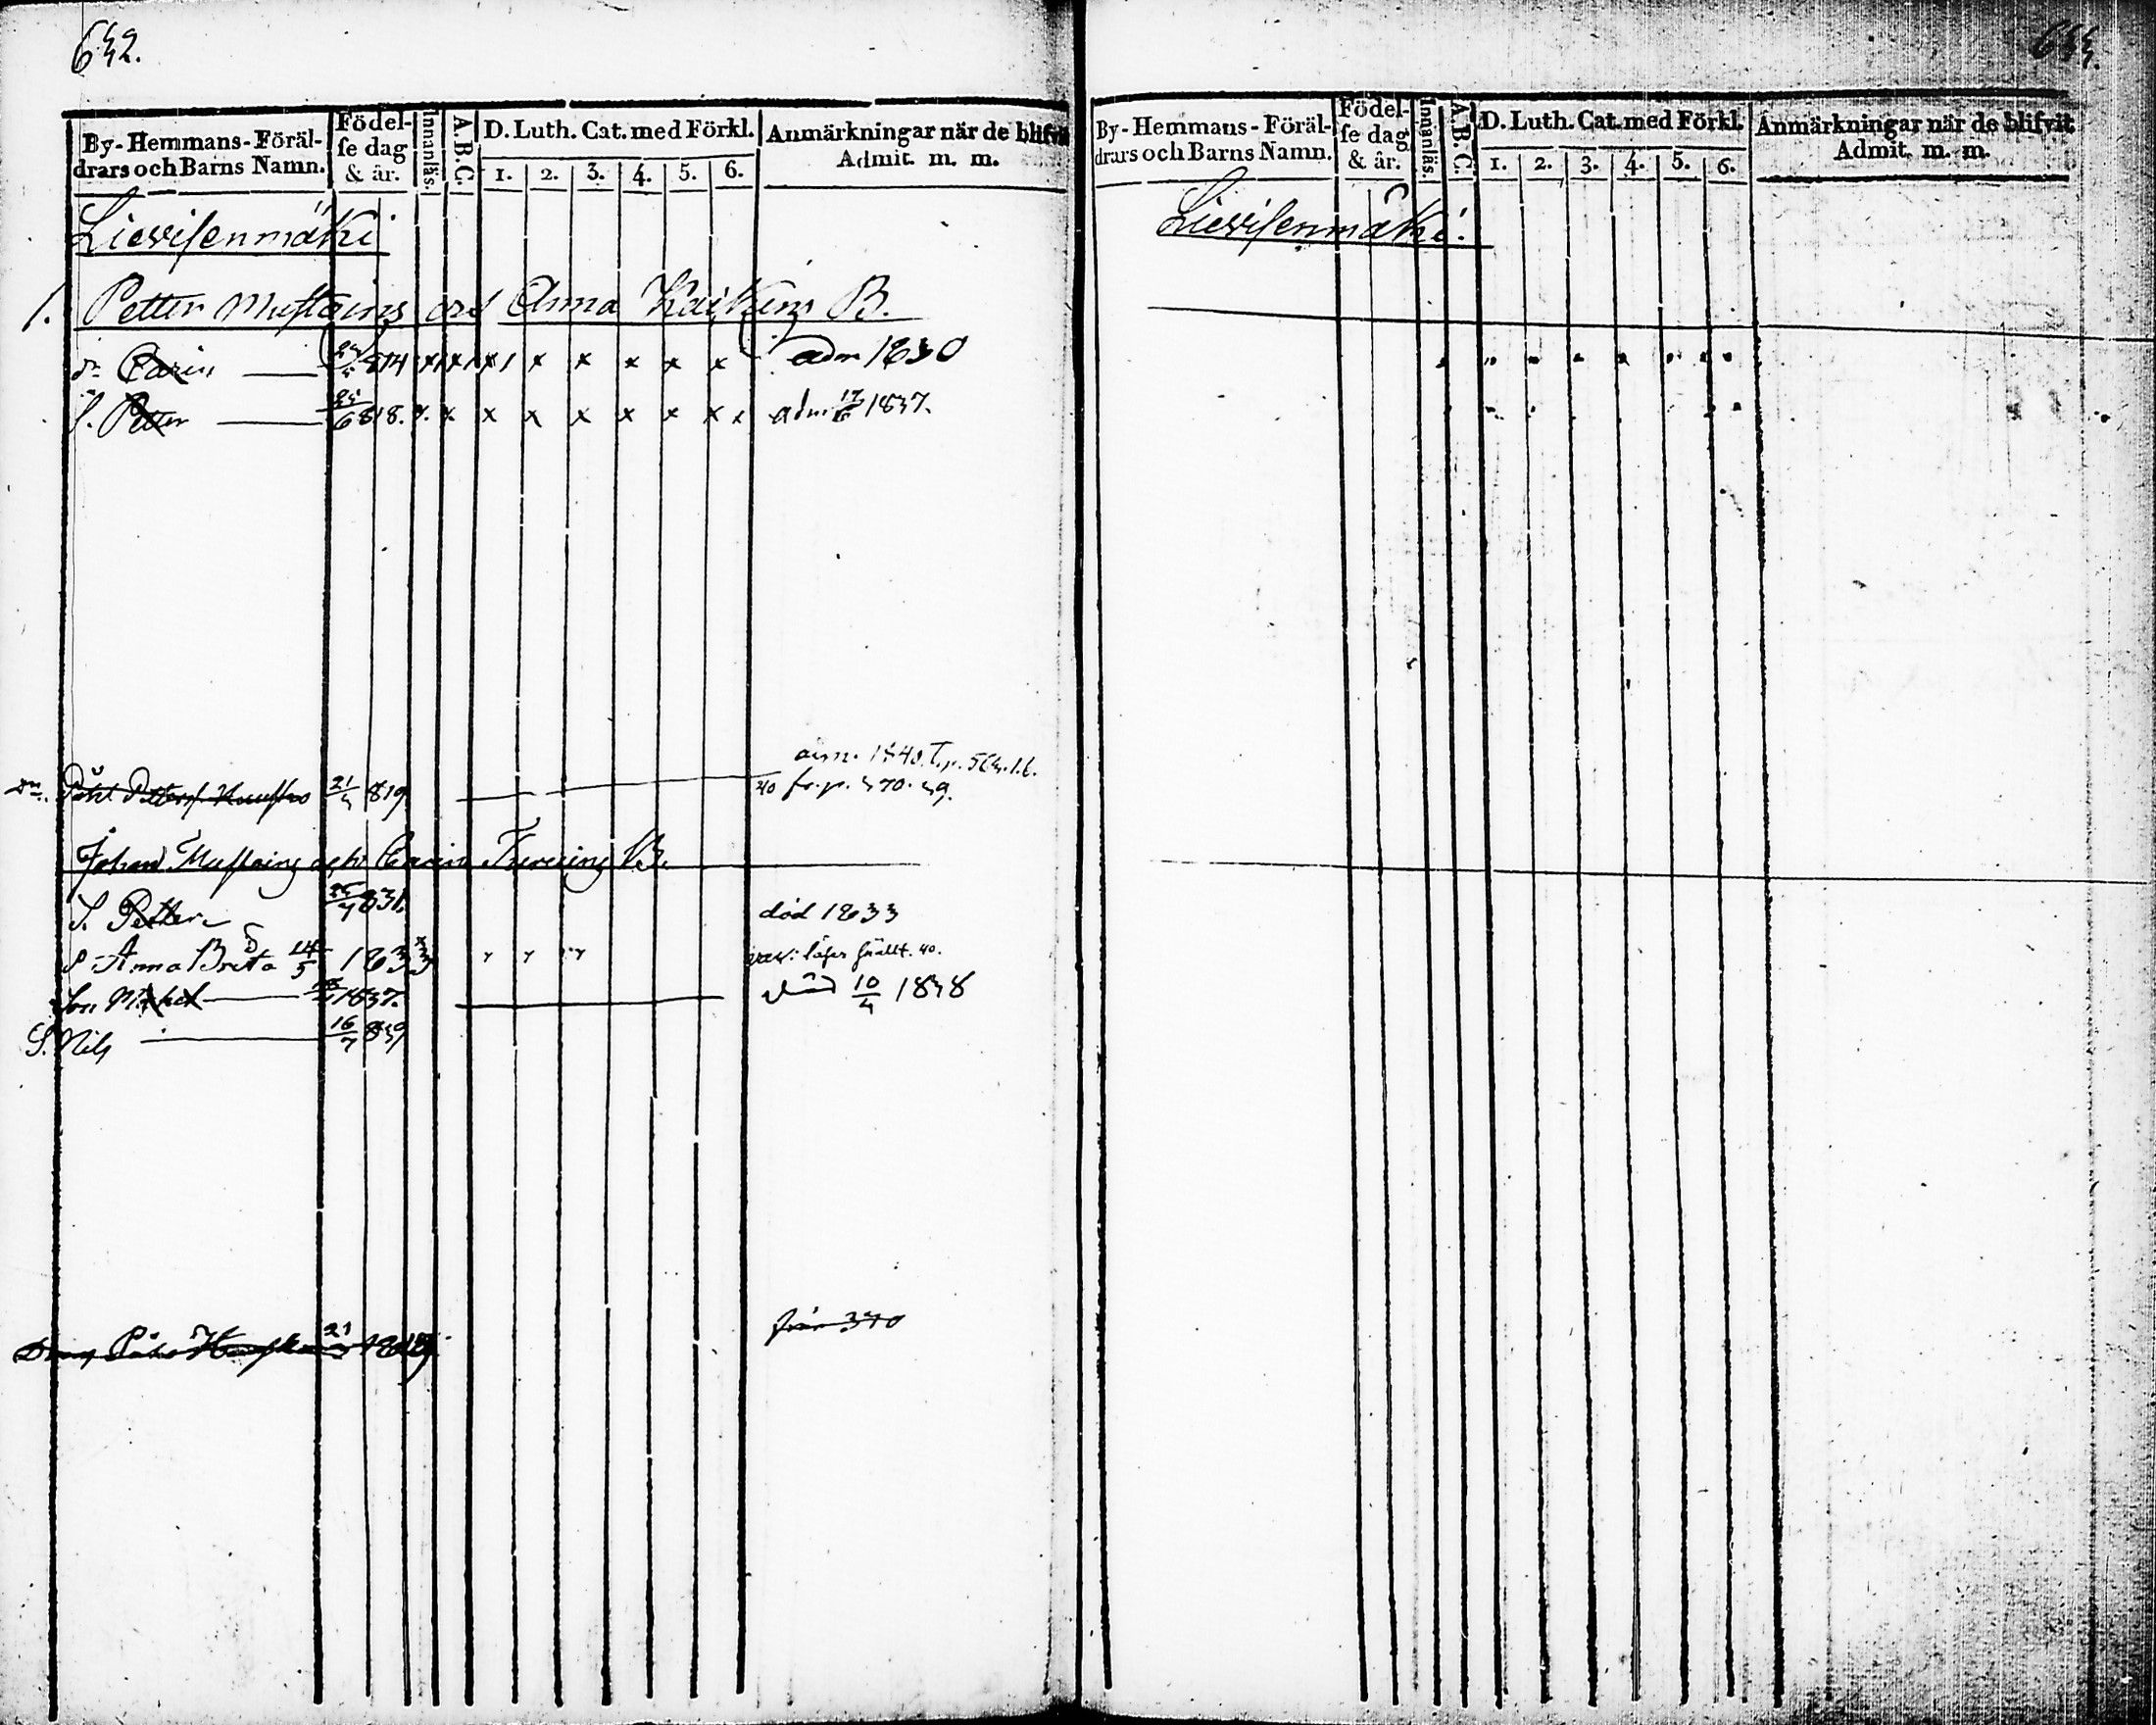 632.
By-Hemmans-Föräl-
drars och Barns Namn.
Födel-
se dag
& år.
Innanläs.
A.B.C.
D. Luth. Cat. med Förkl.
1. 2. 3. 4. 5. 6.
Anmärkningar när de blifvit
Admit. m. m.
Lievisenmäki
1. Petter Mustoins och Anna Kaikin B.
dr Carin 814 x x x x x x x x adm 1830
S. Petter 25/6 818. x x x x x x x x x adm 17/6 1837.
adm. 1840. T. p.
Påhl Petters. 21/3 819 40 fr. p. 370. 39.
Johan Mustoins och Carin B.
S. Petter 25/7 831. död 1833
Anna Brita 14/5 1833
Son Michel 1837. död 10/4 1838
S. Nils 16/7 839
Dreng Påhl 21/3 1819 från 370
633.
By-Hemmans-Föräl-
drars och Barns Namn.
Födel-
se dag
& år.
Innanläs.
A.B.C.
D. Luth. Cat. med Förkl.
1. 2. 3. 4. 5. 6.
Anmärkningar när de blifvit
Admit. m. m.
Lievisenmäki.